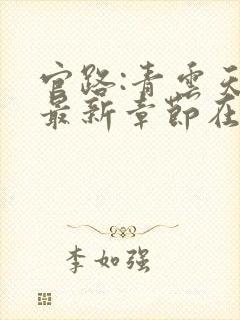 官路:青云天
最新章节在
李如强